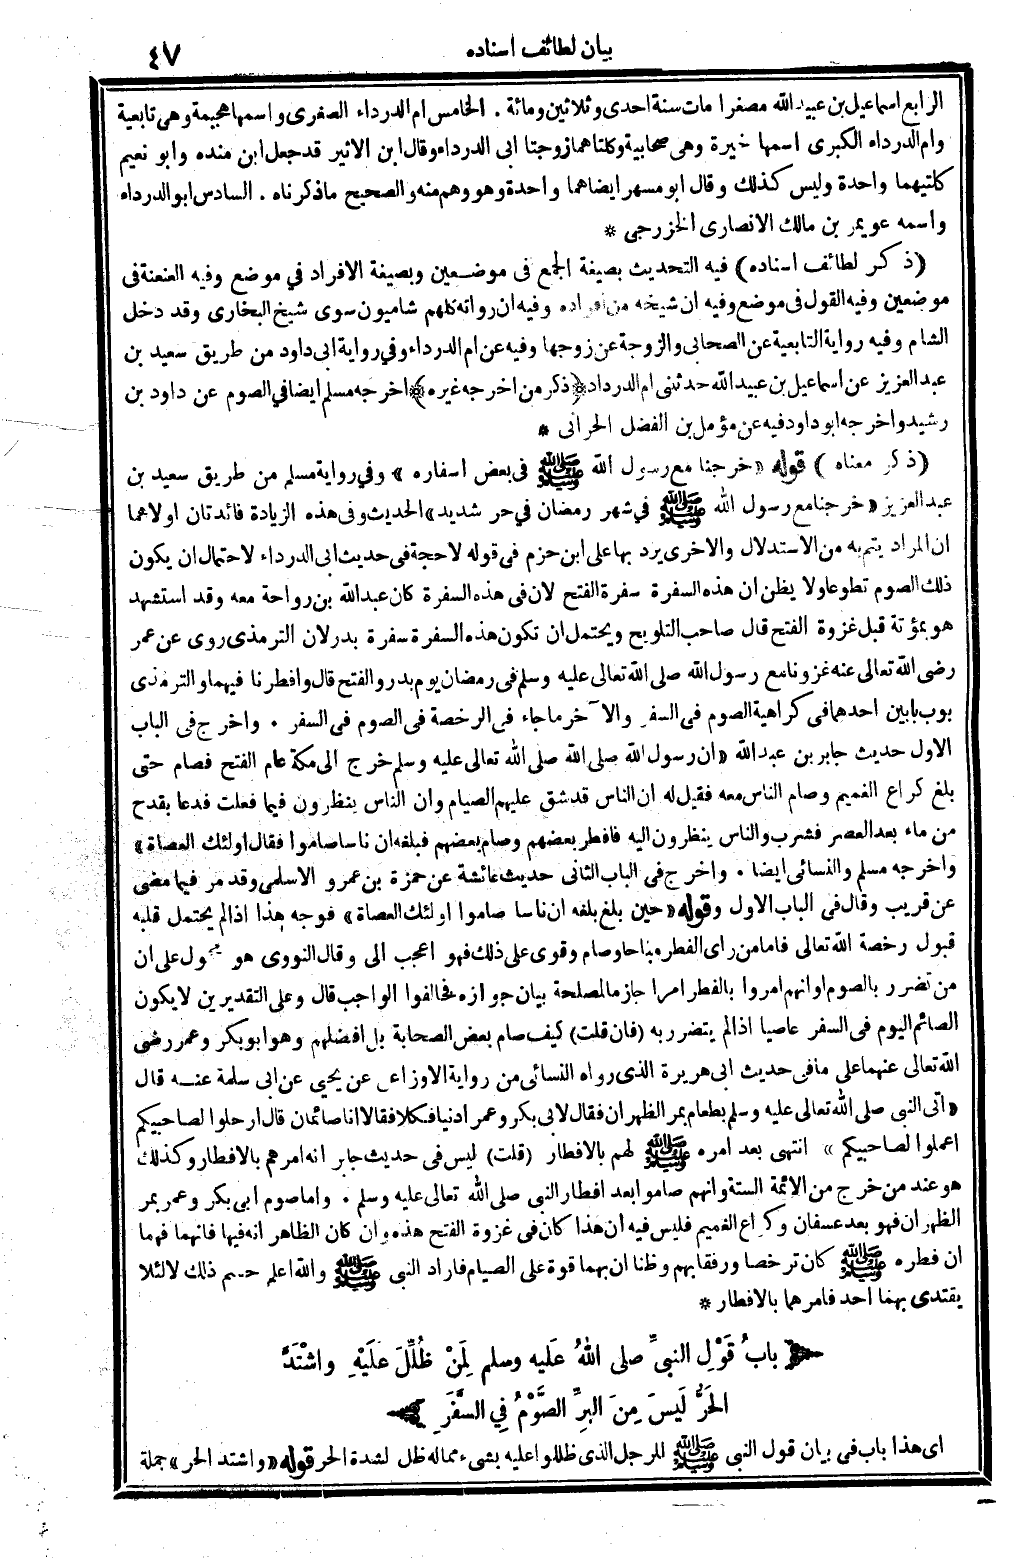 بيان لطائف اسناده
٤٧
الرابع اسماعيل بن عبيد الله مصغرا مات سنة احدى وثلاثين ومائة . الخامس ام الدرداء الصغرى واسمها هجيمة وهى تابعية
وام الدرداء الكبرى اسمها خيرة وهى صحابية وكلتاهما زوجتا ابى الدرداء وقال ابن الاثير قد جعل ابن منده وابو نعيم
كلتيهما واحدة وليس كذلك وقال ابو مسهر ايضا هما واحدة وهو وهم منه والصحيح ماذكرناه . السادس ابو الدرداء
واسمه عويمر بن مالك الانصارى الخزرجى *
(ذكر لطائف اسناده) فيه التحديث بصيغة الجمع فى موضعين وبصيغة الافراد في موضع وفيه العنعنة فى
موضعين وفيه القول فى موضع وفيه ان شيخه من افراده وفيه ان رواته كلهم شاميون سوى شيخ البخارى وقد دخل
الشام وفيه رواية التابعية عن الصحابى والزوجة عن زوجها وفيه عن ام الدرداء وفي رواية ابى داود من طريق سعيد بن
عبد العزيز عن اسماعيل بن عبيد الله حدثنى ام الدرداء ﴿ذكر من اخرجه غيره﴾ اخرجه مسلم ايضا في الصوم عن داود بن
رشيد واخرجه ابو داود فيه عن مؤمل بن الفضل الحرانى *
(ذكر معناه) قوله «خرجنا مع رسول الله ﷺ فى بعض اسفاره» وفي رواية مسلم من طريق سعيد بن
عبد العزيز «خرجنا مع رسول الله ﷺ في شهر رمضان في حر شديد» الحديث وفى هذه الزيادة فائدتان اولاهما
ان المراد يتم به من الاستدلال والاخرى يرد بها على ابن حزم فى قوله لا حجة فى حديث ابى الدرداء لاحتمال ان يكون
ذلك الصوم تطوعا ولا يظن ان هذه السفرة سفرة الفتح لان فى هذه السفرة كان عبد الله بن رواحة معه وقد استشهد
هو بمؤتة قبل غزوة الفتح قال صاحب التلويح ويحتمل ان تكون هذه السفرة سفرة بدر لان الترمذى روى عن عمر
رضى الله تعالى عنه غزونا مع رسول الله صلى الله تعالى عليه وسلم فى رمضان يوم بدر والفتح قال وافطرنا فيهما والترمذى
بوب بابين احدهما فى كراهية الصوم فى السفر والآخر ما جاء فى الرخصة فى الصوم فى السفر . واخرج فى الباب
الاول حديث جابر بن عبد الله «ان رسول الله صلى الله صلى الله تعالى عليه وسلم خرج الى مكة عام الفتح فصام حتى
بلغ كراع الغميم وصام الناس معه فقيل له ان الناس قد شق عليهم الصيام وان الناس ينظرون فيما فعلت فدعا بقدح
من ماء بعد العصر فشرب والناس ينظرون اليه فافطر بعضهم وصام بعضهم فبلغه ان ناسا صاموا فقال اولئك العصاة»
واخرجه مسلم والنسائى ايضا . واخرج فى الباب الثانى حديث عائشة عن حمزة بن عمرو الاسلمى وقد مر فيما مضى
عن قريب وقال فى الباب الاول وقوله «حين بلغ بلغه ان ناسا صاموا اولئك العصاة» فوجه هذا اذا لم يحتمل قلبه
قبول رخصة الله تعالى فاما من راى الفطر مباحا وصام وقوى على ذلك فهو اعجب الى وقال النووى هو محمول على ان
من تضرر بالصوم او انهم امروا بالفطر امرا جازما لمصلحة بيان جوازه فخالفوا الواجب قال وعلى التقديرين لا يكون
الصائم اليوم فى السفر عاصيا اذا لم يتضرر به (فان قلت) كيف صام بعض الصحابة بل افضلهم وهو ابو بكر وعمر رضى
الله تعالى عنهما على ما فى حديث ابى هريرة الذى رواه النسائى من رواية الاوزاعى عن يحيى عن ابى سلمة عنه قال
«اتى النبى صلى الله تعالى عليه وسلم بطعام بمر الظهران فقال لابى بكر وعمر ادنيا فكلا فقالا انا صائمان قال ارحلوا لصاحبيكم
اعملوا لصاحبيكم» انتهى بعد امره ﷺ لهم بالافطار (قلت) ليس فى حديث جابر انه امرهم بالافطار وكذلك
هو عند من خرج من الائمة الستة وانهم صاموا بعد افطار النبى صلى الله تعالى عليه وسلم . واما صوم ابى بكر وعمر بمر
الظهران فهو بعد عسفان وكراع الغميم فليس فيه ان هذا كان فى غزوة الفتح هذه وان كان الظاهر انه فيها فانهما فهما
ان فطره ﷺ كان ترخصا ورفقا بهم وظنا ان بهما قوة على الصيام فاراد النبى ﷺ والله اعلم حسم ذلك لا لئلا
يقتدى بهما احد فامرهما بالافطار *
بابُ قَوْلِ النبىِّ صلى اللهُ عَليه وسلم لِمَنْ ظُلِّلَ عَلَيْهِ واشْتَدَّ
الحَرُّ لَيسَ مِنَ البرِّ الصَّوْمُ فِي السَّفَرِ
اى هذا باب فى بيان قول النبى ﷺ للرجل الذى ظللوا عليه بشىء مما له ظل لشدة الحر قوله «واشتد الحر» جملة